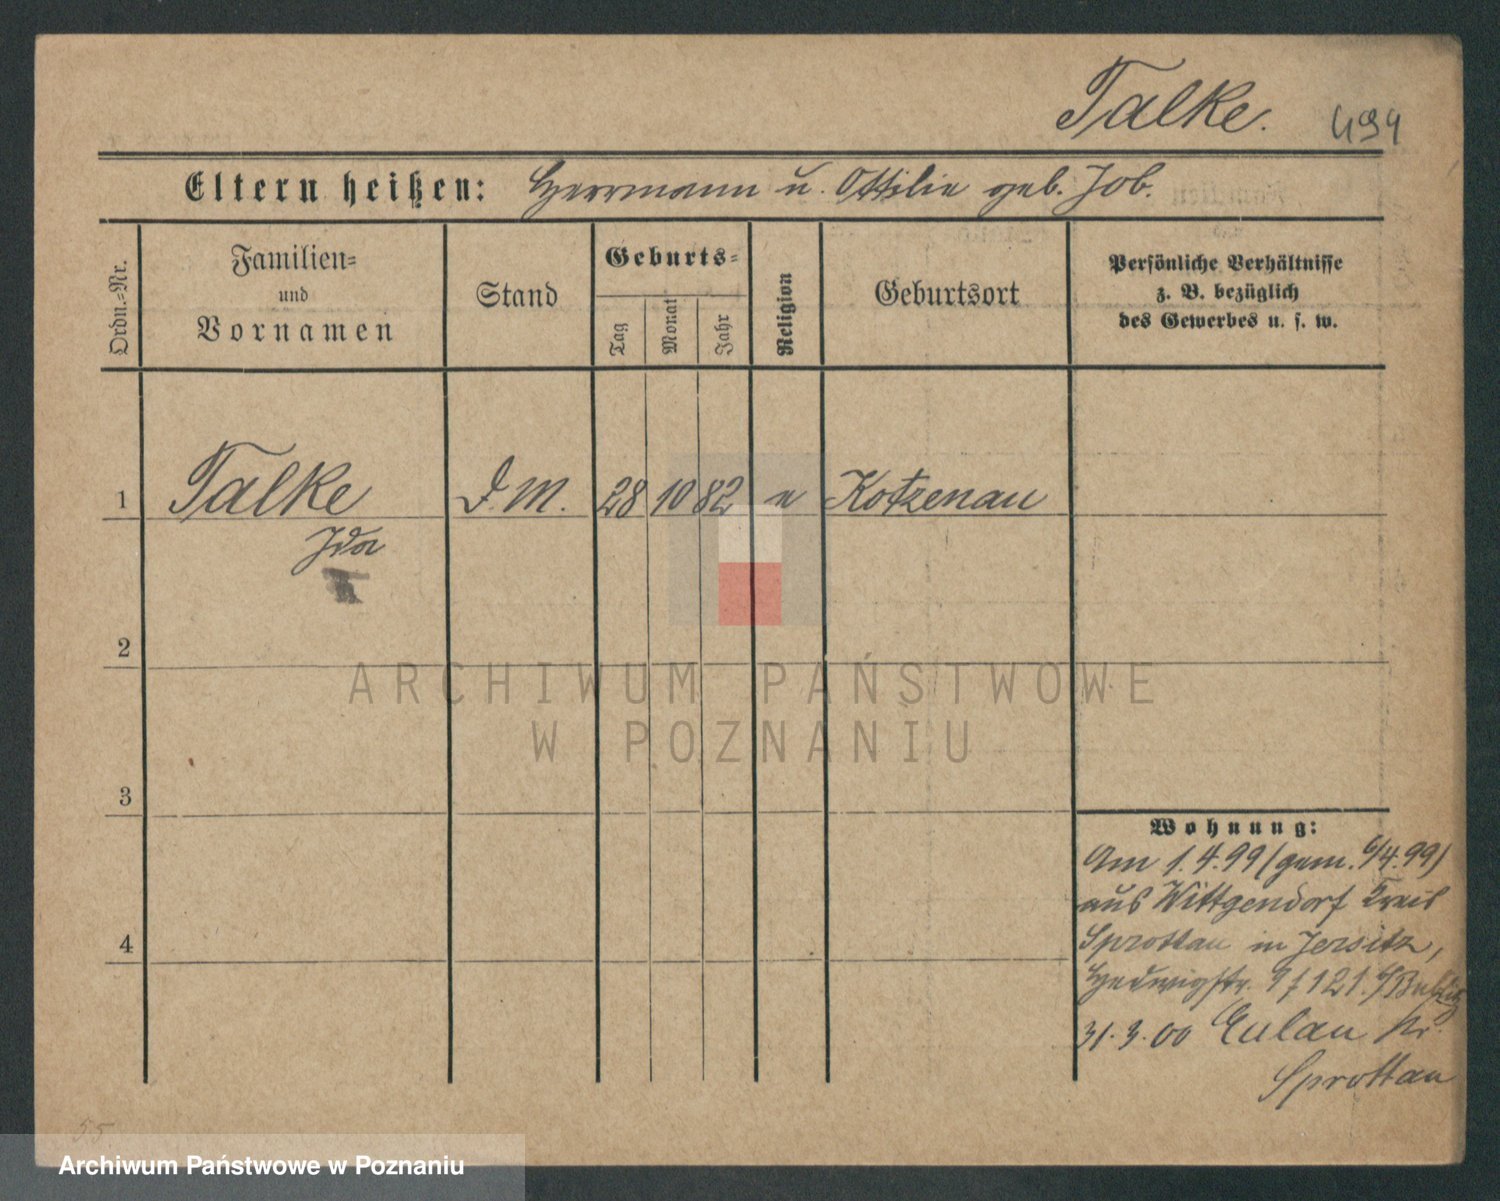 Talke. 494
Eltern heißen: Herrmann u. Ottilie geb. Job.
Ordn.=Nr.
Familien=
und
Vornamen
Stand
Geburts=
Tag
Monat
Jahr
Religion
Geburtsort
Persönliche Verhältnisse
z. B. bezüglich
des Gewerbes u. s. w.
1 Talke D. M. 28 10 82 e Kotzenau
Ida
2
3
4
Wohnung:
Am 1.4.99 (gem. 6/4.99)
aus Wittgendorf Kreis
Sprottau in Jersitz,
Hedwigstr. 9 I 121.
31.3.00 Eulau Kr.
Sprottau
55
ARCHIWUM PAŃSTWOWE
W POZNANIU
Archiwum Państwowe w Poznaniu